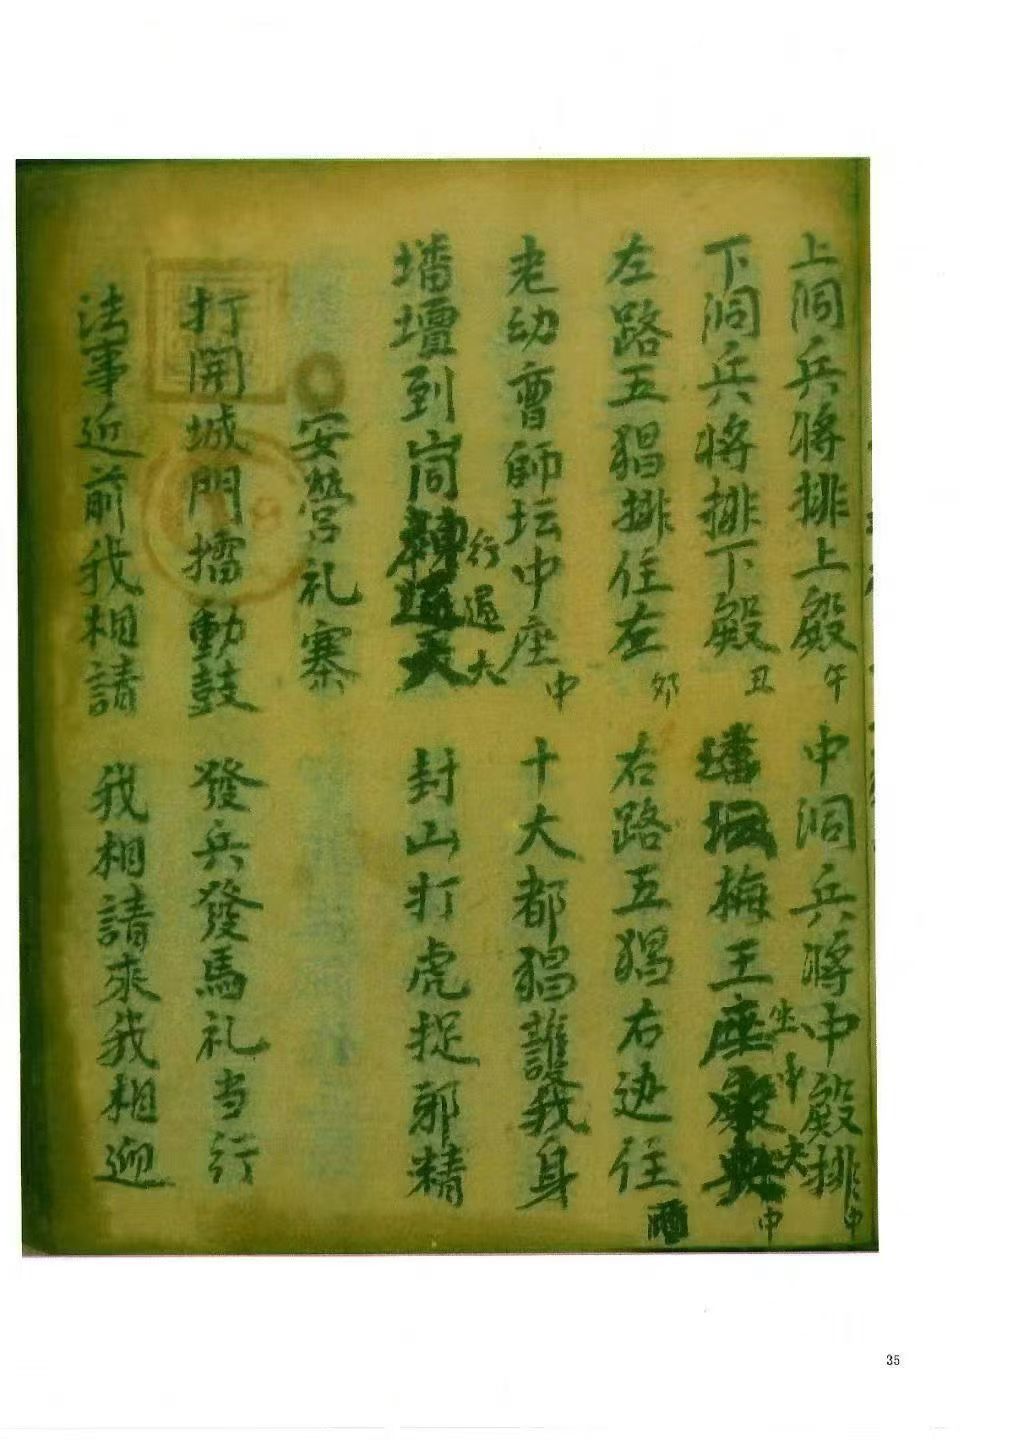 上洞兵將排上殿午 中洞兵將中殿排中
下洞兵將排下殿丑 墦坛梅王座中
坐中
左路五猖排住左卯 右路五猖右边住酉
老幼曹師坛中座中 十大都猖護我身
墦壇到峝轉 封山打虎捉邪精
行
大
安營礼寨
打開城門擂動鼓 發兵發馬礼当行
法事近前我相請 我相請來我相迎
35